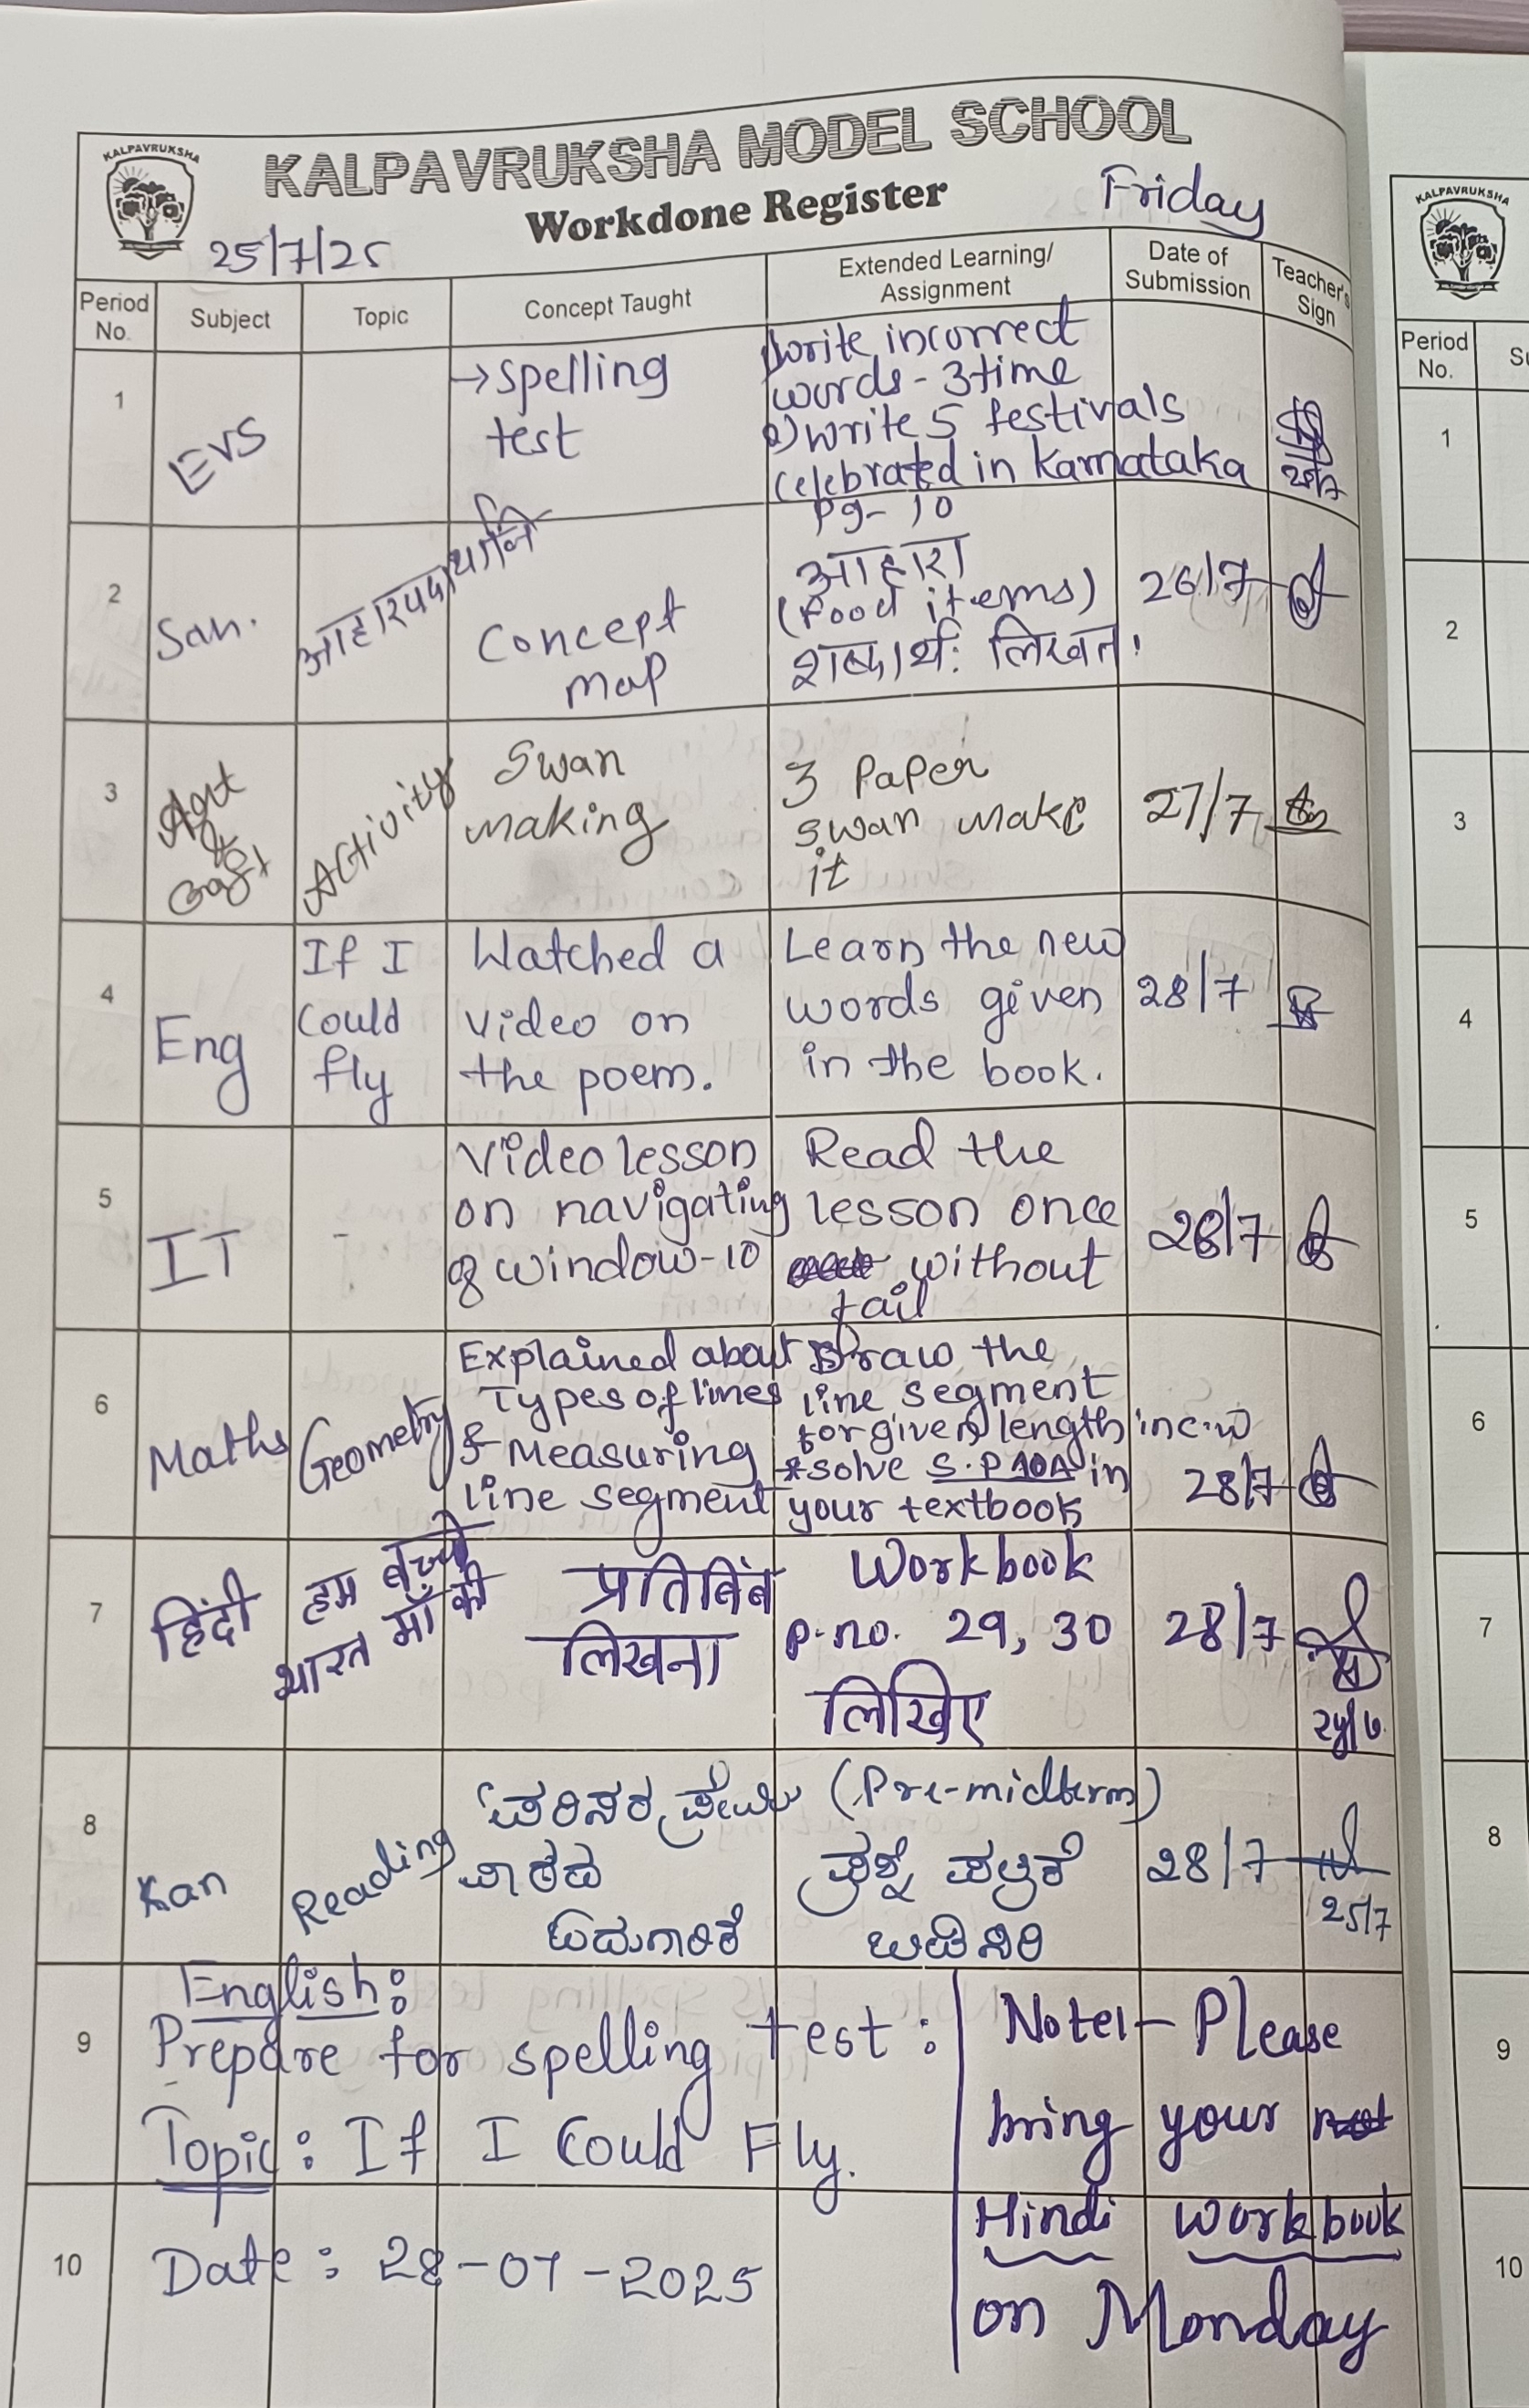 KALPAVRUKSHA
KALPAVRUKSHA MODEL SCHOOL
Workdone Register
Friday
25/7/25
Period No.
Subject
Topic
Concept Taught
Extended Learning/ Assignment
Date of Submission
Teacher's Sign
1
EVS
→ Spelling
test
1) write incorrect
words - 3 time
2) write 5 festivals
celebrated in Karnataka
2
San.
Concept
map
Pg- 10
आहारा
(Food items)
शब्दार्थ: लिखत।
26/7
3
Art
&
Craft
Activity
Swan
making
3 Paper
swan make
it
27/7
4
Eng
If I
Could
fly
Watched a
video on
the poem.
Learn the new
words given
in the book.
28/7
5
IT
-
Video lesson
on navigating
of window-10
Read the
lesson once
without
fail
28/7
6
Maths
Geometry
Explained about
Types of lines
& Measuring
line segment
Draw the
line segment
for given length in c.w
*solve S.P 10A in
your textbook
28/7
7
हिंदी
हम बच्चे
भारत माँ की
प्रतिबिंब
लिखना
Workbook
p.no. 29, 30
लिखिए
28/7
8
Kan
Reading
ಪರಿಸರ ಪ್ರೇಮಿ
(Pre-midterm)
ಪ್ರಶ್ನೆ ಪತ್ರಿಕೆ
28/7
25/7
9
English:
Prepare for spelling test:
Topic: If I Could Fly.
10
Date: 28-07-2025
Note:- Please
bring your
Hindi workbook
on Monday
KALPAVRUKSHA
Period
No.
1
2
3
4
5
6
7
8
9
10